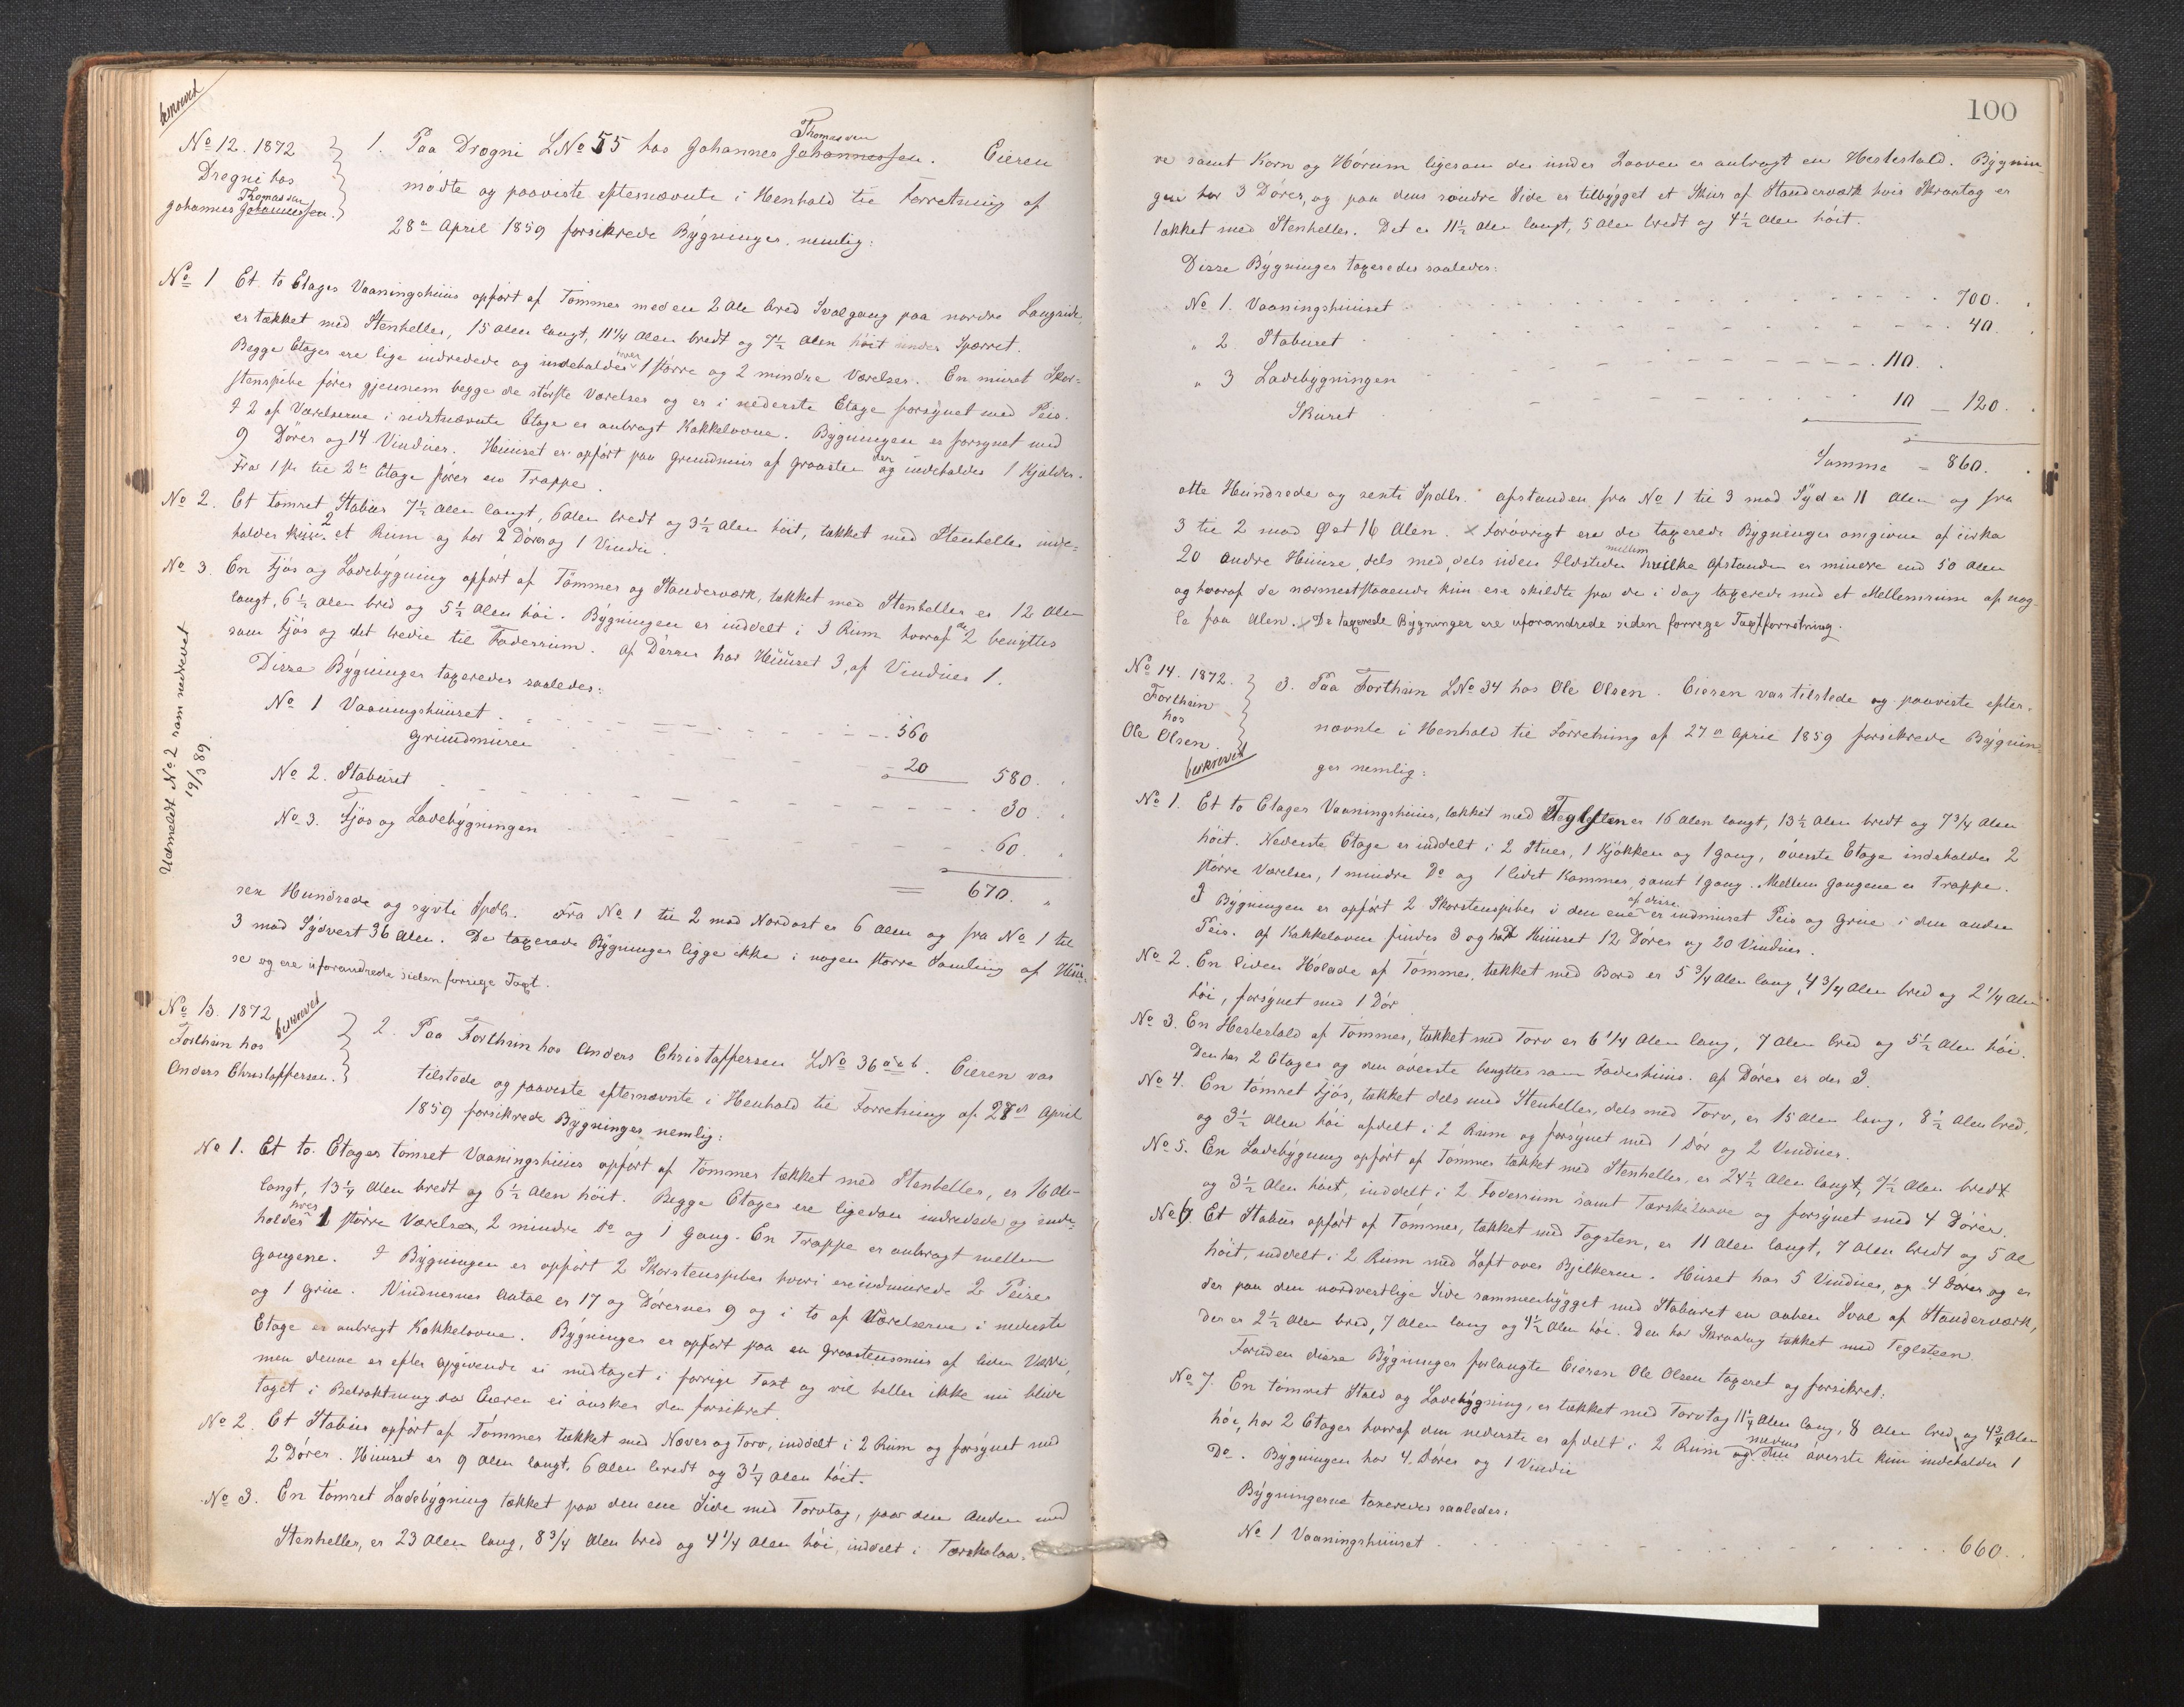 beskrevet
No 12. 1872
Drægni hos
Thomassen
Johannes Johannessen.
1. Paa Drægni LNo 55 hos Johannes Johannessen. Eieren
Thomassen
mødte og paaviste efternævnte i Henhold til Forretning af
28de April 1859 forsikrede Bygninger, nemlig:
No 1 Et to Etages Vaaningshuus opført af Tømmer med en 2 Alen bred Svalgang paa nordre Langside,
er tækket med Stenheller, 15 Alen langt, 11 1/4 Alen bredt og 7 1/2 Alen høit under Sparret.
Begge Etager ere lige indredede og indeholder hver 1 større og 2 mindre Værelser. En muret Skor-
stenspibe fører gjennem begge de største Værelser og er i nederste Etage forsynet med Peis.
I 2 af Værelserne i sidstnævnte Etage er anbragt Kakkelovne. Bygningen er forsynet med
9 Dører og 14 Vinduer. Huuset er opført paa Grundmuur af Graasten og der indeholdes 1 Kjælder.
Fra 1ste til 2den Etage fører en Trappe.
No 2. Et tømret Stabur 7 1/2 Alen langt, 6 Alen bredt og 3 1/2 Alen høit, tækket med Stenheller inde-
holder kun 2 et Rum og har 2 Dører og 1 Vindu.
No 3. En Fjøs og Ladebygning opført af Tømmer og Standerværk, tækket med Stenheller er 12 Alen
langt, 6 1/2 Alen bred og 5 1/2 Alen høi. Bygningen er inddelt i 3 Rum hvoraf de 2 benyttes
som Fjøs og det tredie til Foderrum. Af Dører har Huuset 3, af Vinduer 1.
Disse Bygninger taxeredes saaledes:
No 1 Vaaningshuuset 560
Grundmuren 20 580.
No 2. Staburet 30.
No 3. Fjøs og Ladebygningen 60.
= 670.
sex Hundrede og sytti Spdlr. Fra No 1 til 2 mod Nordost er 6 Alen og fra No 1 til
3 mod Sydvest 36 Alen. De taxerede Bygninger ligge ikke i nogen større Samling af Huu-
se og ere uforandrede siden forrige Taxt.
Udmeldt No 2 som nedrevet
19/3 89.
No 13. 1872
beskrevet
Forthun hos
Anders Christoffersen.
2. Paa Forthun hos Anders Christoffersen LNo 36 a & b. Eieren var
tilstede og paaviste efternævnte i Henhold til Forretning af 28de April
1859 forsikrede Bygninger nemlig:
No 1. Et to Etages tømret Vaaningshuus opført af Tømmer tækket med Stenheller, er 16 Ale-
langt, 13 1/4 Alen bredt og 6 1/2 Alen høit. Begge Etager ere ligedan indredede og inde-
holder hver 1 større Værelse, 2 mindre Do og 1 Gang. En Trappe er anbragt mellem
Gangene. I Bygningen er opført 2 Skorstenspiber hvori ere indmurede 2 Peiser
og 1 Grue. Vinduernes Antal er 17 og Dørernes 9 og i to af Værelserne i nederste
Etage er anbragt Kakkelovne. Bygningen er opført paa en Graastensmuur af liden Værdi,
men denne er efter Opgivende ei medtaget i forrige Taxt og vil heller ikke nu blive
taget i Betraktning da Eieren ei ønsker den forsikret.
No 2. Et Stabuur opført af Tømmer tækket med Næver og Torv, inddelt i 2 Rum og forsynet med
2 Dører. Huuset er 9 Alen langt, 6 Alen bredt og 3 1/4 Alen høit.
No 3. En tømret Ladebygning tækket paa den ene Side med Torvtag, paa den Anden med
Stenheller, er 23 Alen lang, 8 3/4 Alen bred og 4 1/4 Alen høi, inddelt i Tærskelaa-
100
ve samt Korn og Hørum ligesom der under Laaven er anbragt en Hestestald. Bygnin-
gen har 3 Dører, og paa dens søndre Side er tilbygget et Skur af Standerværk hvis Skraatag er
tækket med Stenheller. Det er 11 1/2 Alen langt, 5 Alen bredt og 4 1/2 Alen høit.
Disse Bygninger taxeredes saaledes:
No 1. Vaaningshuuset 700.
" 2 Staburet 40.
" 3 Ladebygningen 110.
Skuret 10 - 120.
Summa = 860.
otte Hundrede og sexti Spdlr. Afstanden fra No 1 til 3 mod Syd er 11 Alen og fra
3 til 2 mod Øst 16 Alen. x Forøvrigt ere de taxerede Bygninger omgivne af cirka
20 andre Huuse, dels med, dels uden Ildsteder mellem hvilke Afstanden er mindre end 50 Alen
og hvoraf de nærmeststaaende kun ere skildte fra de i Dag taxerede med et Mellemrum af nog-
le faa Alen. x De taxerede Bygninger ere uforandrede siden forrige Taxtforretning.
No 14. 1872.
Forthun
hos
Ole Olsen.
beskrevet
3. Paa Forthun LNo 34 hos Ole Olsen. Eieren var tilstede og paaviste efter-
nævnte i Henhold til Forretning af 27de April 1859 forsikrede Bygnin-
ger nemlig:
No 1. Et to Etages Vaaningshuus, tækket med Teglsten er 16 Alen langt, 13 1/2 Alen bredt og 7 3/4 Alen
høit. Nederste Etage er inddelt i 2 Stuer, 1 Kjøkken og 1 Gang, øverste Etage indeholder 2
større Værelser, 1 mindre Do og 1 lidet Kammer, samt 1 Gang. Mellem Gangene er Trappe.
I Bygningen er opført 2 Skorstenspiber i den ene af disse er indmuret Peis og Grue i den anden
Peis. Af Kakkelovne findes 3 og har Huuset 12 Dører og 20 Vinduer.
No 2. En liden Hølade af Tømmer, tækket med Bord er 5 3/4 Alen lang, 4 3/4 Alen bred og 2 1/4 Alen
høi, forsynet med 1 Dør
No 3. En Hestestald af Tømmer, tækket med Torv er 6 1/4 Alen lang, 7 Alen bred og 5 1/2 Alen høi.
Den har 2 Etager og den øverste benyttes som Foderhuus. Af Dører er der 3.
No 4. En tømret Fjøs, tækket dels med Stenheller, dels med Torv, er 15 Alen lang, 8 1/2 Alen bred,
og 3 1/2 Alen høi afdelt i 2 Rum og forsynet med 1 Dør og 2 Vinduer.
No 5. En Ladebygning opført af Tømmer tækket med Stenheller, er 24 1/2 Alen langt, 7 1/2 Alen bredt
og 3 1/2 Alen høit, inddelt i 2 Foderrum samt Tærskelaave og forsynet med 4 Dører.
No 6. Et Stabuur opført af Tømmer, tækket med Tagsten, er 11 Alen langt, 7 Alen bredt og 5 Al
høit, inddelt i 2 Rum med Loft over Bjelkerne. Huset har 5 Vinduer, og 4 Dører og er
der paa den nordvestlige Side sammenbygget med Staburet en aaben Sval af Standerværk,
der er 2 1/2 Alen bred, 7 Alen lang og 4 1/2 Alen høi. Den har Skraatag tækket med Teglsteen.
Foruden disse Bygninger forlangte Eieren Ole Olsen taxeret og forsikret:
No 7. En tømret Stald og Ladebygning, er tækket med Torvtag 11 1/4 Alen lang, 8 Alen bred og 4 3/4 Alen
høi, har 2 Etager hvoraf den nederste er afdelt i 2 Rum og den medens øverste kun indeholder 1
Do. Bygningen har 4 Dører og 1 Vindu
Bygningerne taxeredes saaledes:
No 1 Vaaningshuuset 660.